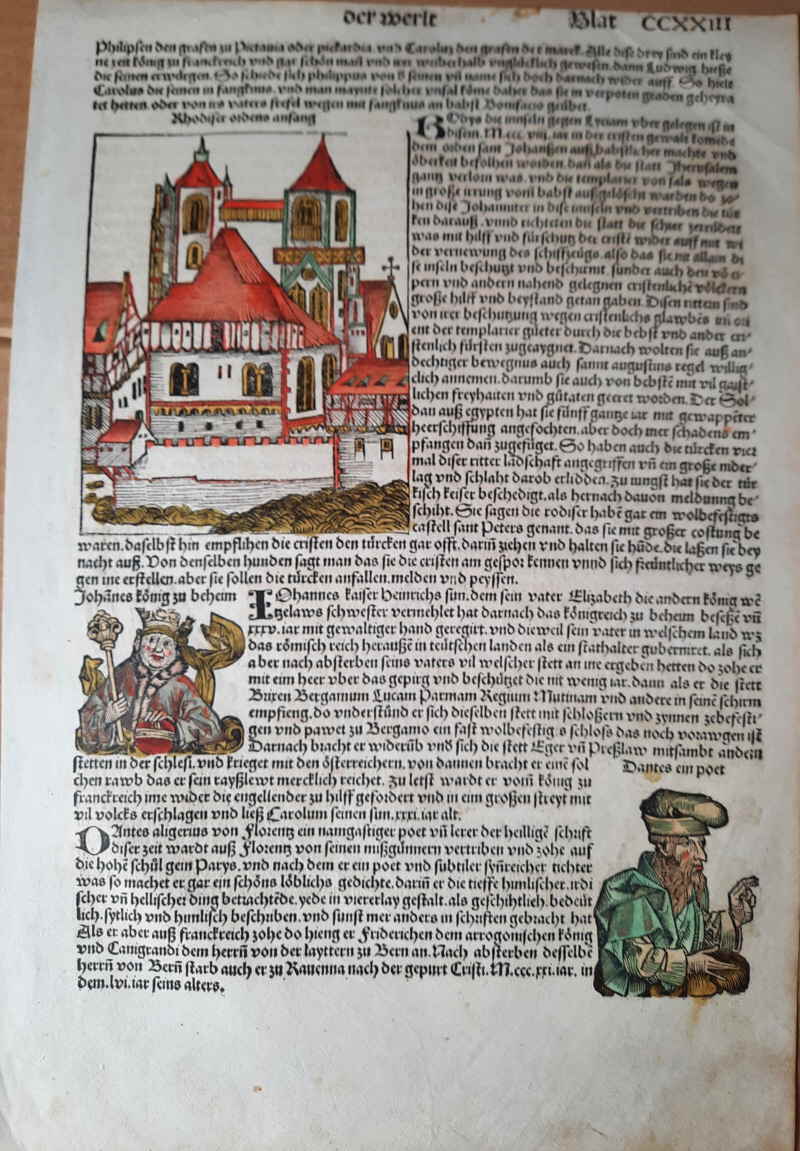 der werlt Blat CCXXIII
Philipsen den grafen zu Pictauia oder pickardia. vnd Carolus den grafen der marck. Alle dise drey sind ein kley
ne zeit könig zu franckreich vnd gar schön man vnd irer weiberhalb vnglücklich gewesen. dann Ludwig hieße
die seinen erwürgen. So schiede sich philippus von d̕ seinen vñ name sich doch darnach wider auff. So hielt
Carolus die seinen in fangknus. vnd man maynte solcher vnfal köme daher das sie in verpoten graden geheyra
tet hetten. oder von irs vaters wegen mit fangknus an babst Bonifacio geübet.
Rhodiser ordens anfang
Rhodys die innseln gegen Lyciam vber gelegen ist in
disem. M.ccc.viij. iar in der cristen gewalt komende
dem orden sant Johanßen auß babstlicher machte vnd
öberkeit befolhen worden. dan als die statt Jherusalem
gantz verlorn was. vnd die templarier von fals wegen
in große irrung vom babst außgelöscht warden do zo⸗
hen dise Johanniter in dise innseln vnd vertriben die tür
ken darauß. vnnd richteten die statt die schier zerrüddet
was mit hilff vnd fürschub der cristē wider auff mit
der vernewung des schiffzeugs. also das sie nit allain di
se inseln beschutzt vnd beschirmt. sunder auch den
pern vnd andern nahend gelegnen cristenlichē völckern
große hilff vnd beystand getan haben. Disen rittern sind
von irer beschutzung wegen cristenlichs glawbēs
ent der templarier güeter durch die bebst vnd ander cri⸗
stenlich fürsten zugeaygnet. Darnach wolten sie auß an⸗
dechtiger bewegnus auch sannt augustins regel willig⸗
clich annemen. darumb sie auch von bebstē mit vil gaist⸗
lichen freyhaiten vnd gütaten geeret worden. Der Sol⸗
dan auß egypten hat sie fünff gantze iar mit gewappēter
heerschiffung angefochten. aber doch mer schadens em⸗
pfangen dañ zugefüget. So haben auch die türcken vier
mal diser ritter lādschaft angegriffen vñ ein große nider⸗
lag vnd schlaht darob erlidden. Zu iungst hat sie der tür
kisch keiser beschedigt. als hernach dauon meldunng be⸗
schiht. Sie sagen die rodiser habē gar ein wolbefestigts
castell sant Peters genant. das sie mit großer costung be
waren. daselbst hin empflihen die cristen den türcken gar offt. dariñ ziehen vnd halten sie hūde. die laßen sie bey
nacht auß. Von denselben hunden sagt man das sie die cristen am gespor kennen vnnd sich freüntlicher weys ge
gen ine erstellen. aber sie sollen die türcken anfallen. melden vnd peyssen.
Johānes könig zu beheim
IOhannes kaiser Heinrichs sun. dem sein vater Elizabeth die andern könig wē
tzelaws schwester vermehlet hat darnach das königreich zu beheim beseßē vñ
xxxv. iar mit gewaltiger hand geregirt. vnd dieweil sein vater in welschem land wʒ
das römisch reich heraußē in teütschen landen als ein stathalter guberniret. als sich
aber nach absterben seins vaters vil welscher stett an ine ergeben hetten do zohe er
mit eim heer vber das gepirg vnd beschützet die nit wenig iar. dann als er die stett
Brixen Bergamum Lucam Parmam Regium Mutinam vnd andere in seinē schirm
empfieng. do vnderstūnd er sich dieselben stett mit schloßern vnd zynnen zebefesti⸗
gen vnd pawet zu Bergamo ein fast wolbefestigts schloß das noch vorawgen ist
Darnach bracht er widerūb vnd sich die stett Eger vñ Preßlaw mitsambt andern
stetten in der schlesi. vnd krieget mit den österreichern. von dannen bracht er einē sol
chen rawb das er sein rayßlewt mercklich reichet. Zu letst wardt er vom könig zu
franckreich ime wider die engellender zu hilff gefordert vnd in eim großen streyt mit
vil volcks erschlagen vnd ließ Carolum seinen sun. xxxi. iar alt.
Dantes ein poet
DAntes aligerius von Florentz ein namhaftiger poet vñ lerer der heiligē schrift
diser zeit wardt auß Florentz von seinen mißgünnern vertriben vnd zohe auf
die hohē schūl gein Parys. vnd nach dem er ein poet vnd subtiler synreicher tichter
was so machet er gar ein schöns löblichs gedichte. dariñ er die tieffe himlischer. irdi
scher vñ hellischer ding betrachtēde. yede in viererlay gestalt. als geschihtlich. bedeüt
lich. sytlich vnd himlisch beschriben. vnd sunst mer anders in schriften gebracht hat
Als er aber auß franckreich zohe do hieng er Friderichen dem arrogonischen könig
vnd Canigrandi dem herrñ von der layttern zu Bern an. Nach absterben desselbē
herrñ von Berñ starb auch er zu Rauenna nach der gepurt Cristi. M.ccc.xxi. iar. in
dem. lvi. iar seins alters.